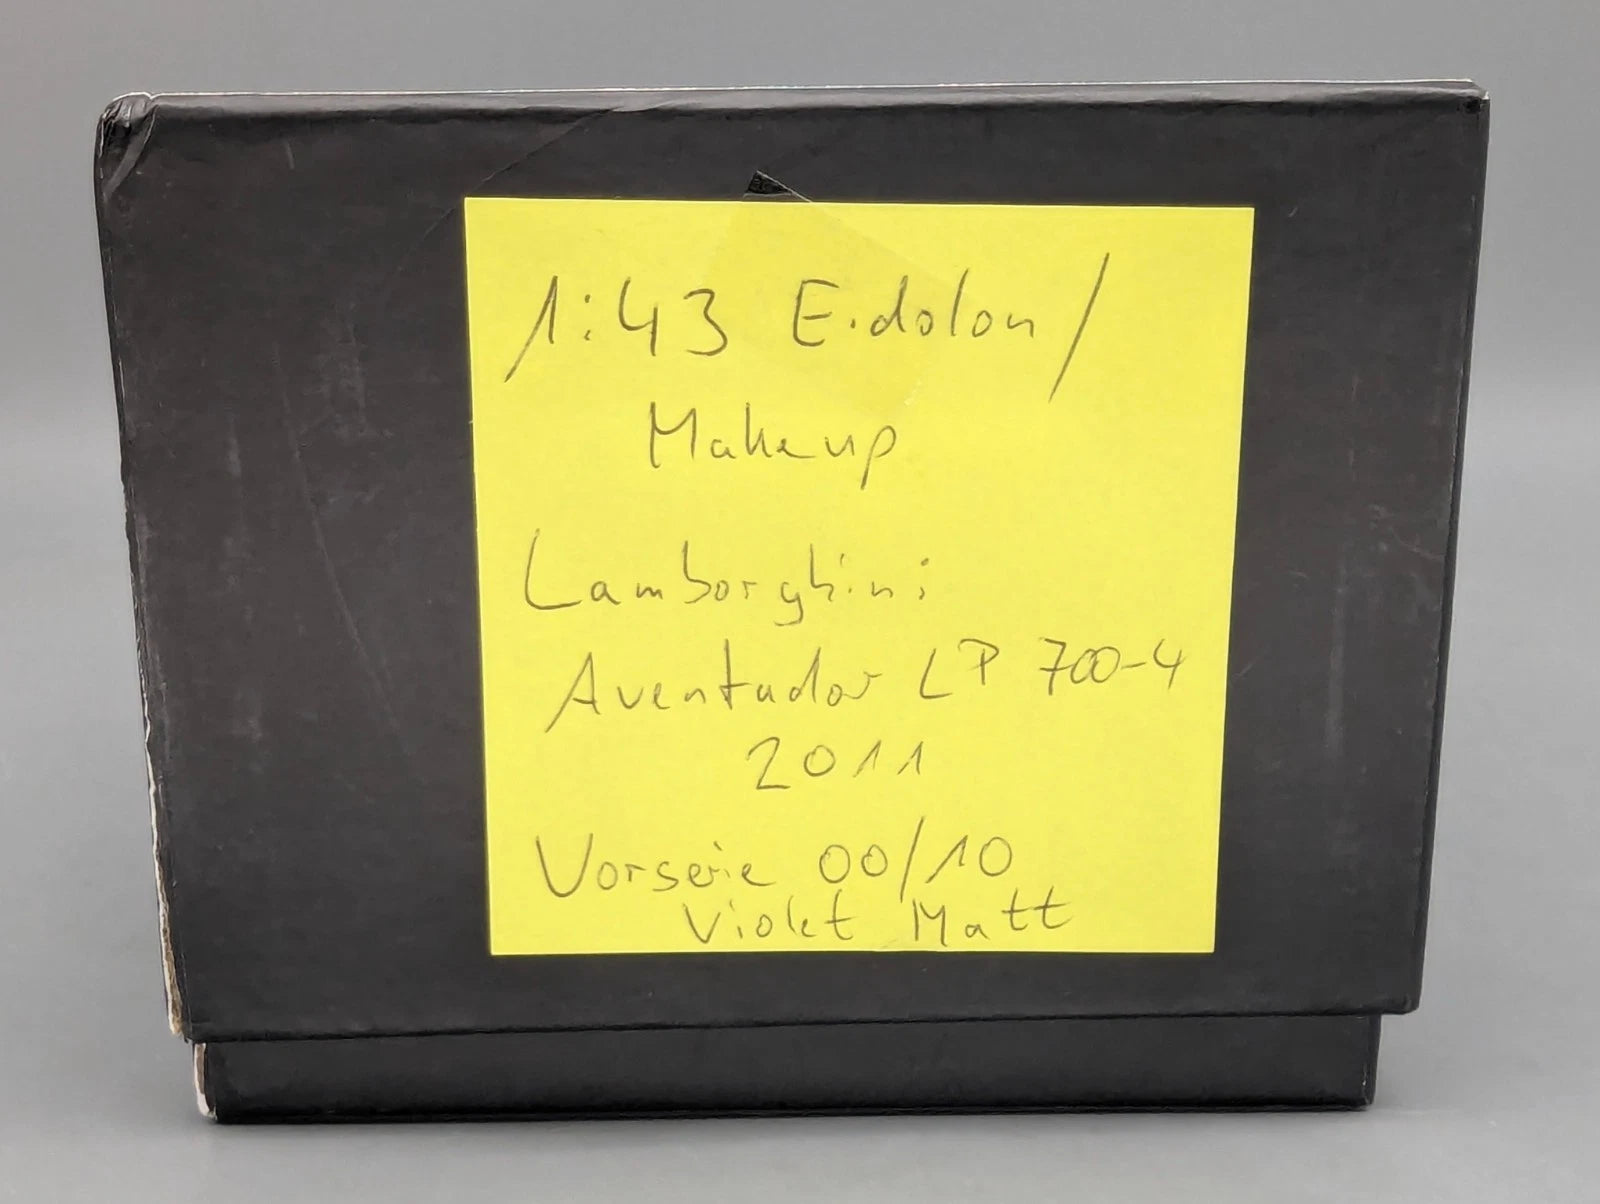 1:43 Eidolon/
Makeup
Lamborghini
Aventador LP 700-4
2011
Vorserie 00/10
Violet Matt